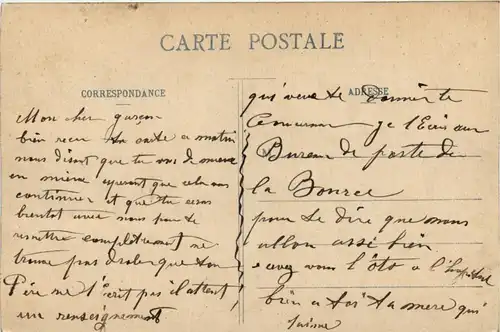 CARTE POSTALE
CORRESPONDANCE
Mon cher garçon
bien recu ta carte ce matin
nous disant que tu vas de mieux
en mieux esperant que cela vas
continuer et que tu seras
bientot avec nous pour te
remettre complètement ne
trouve pas drole que ton
Père ne t'écrit pas il attent
un renseignement
ADRESSE
qui veux te
concernant je l'Ecris au
Bureau de poste de
la Bource
pour te dire que nous
allon assé bien
avez vous l'oto a l'hopital
bien a toi ta mere qui
t'aime